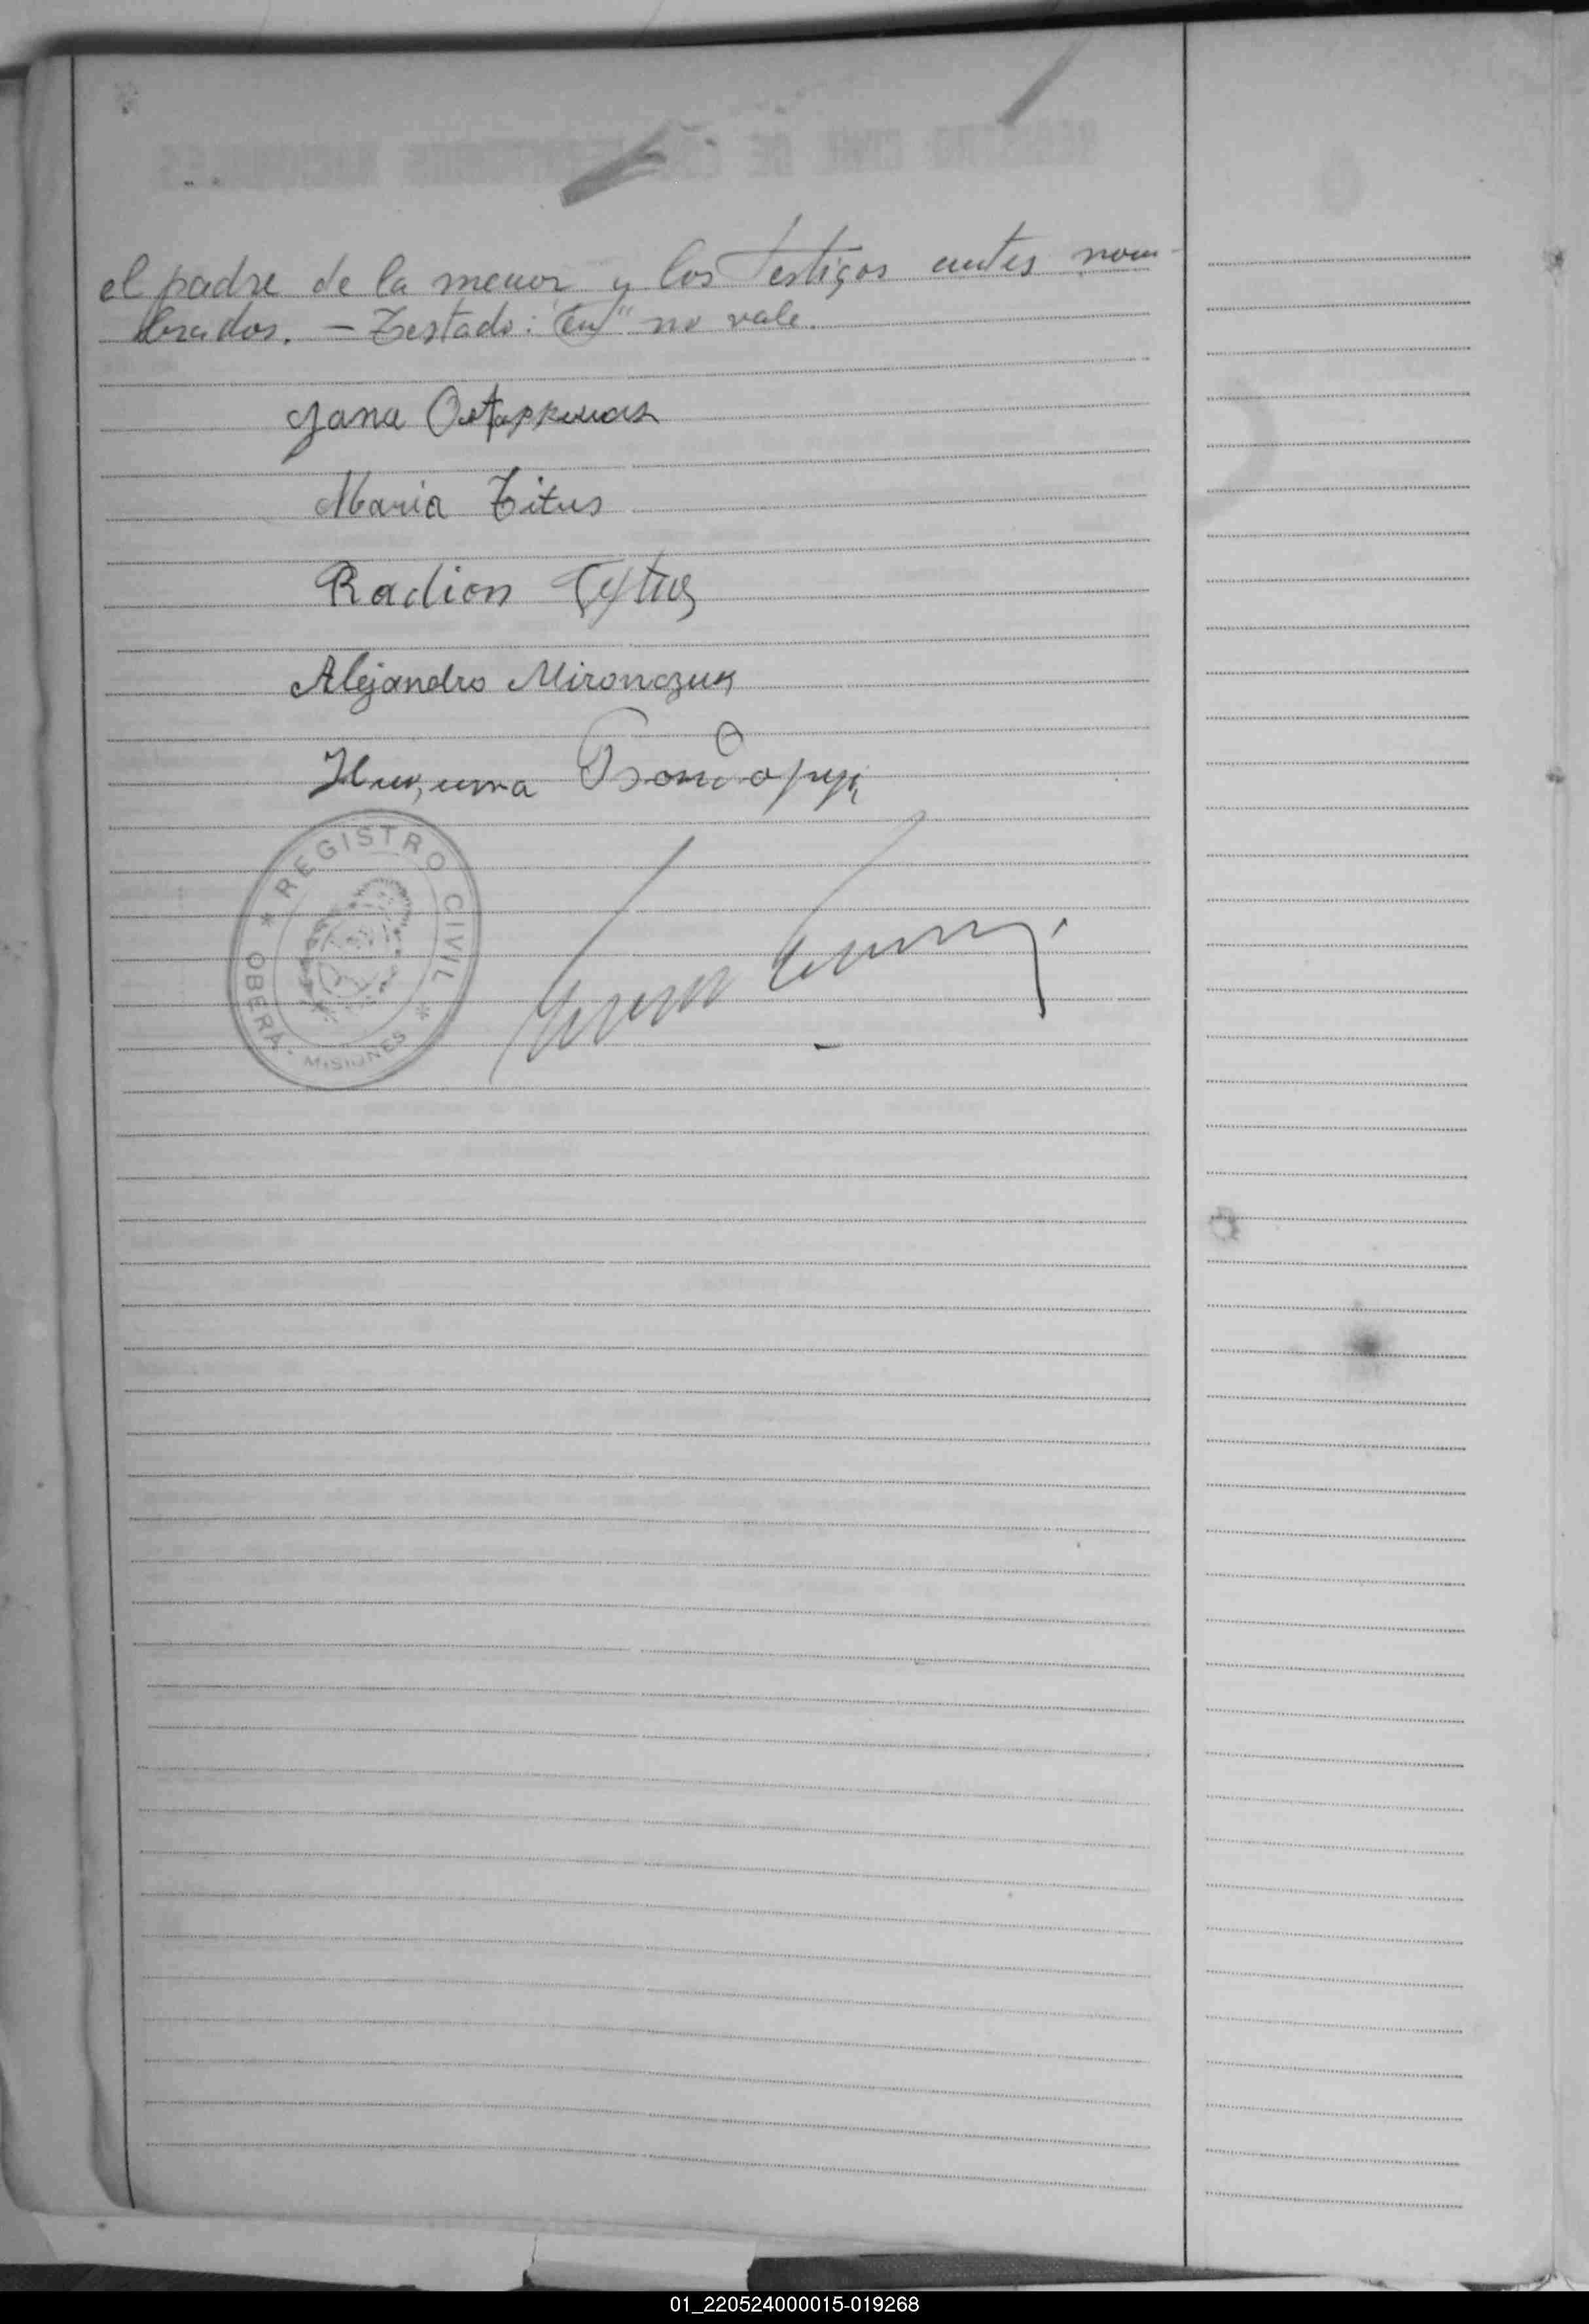 el padre de la menor y los testigos antes nom-
brados. — Testado: "en" no vale.
Jana
Maria Titus
Radion
Alejandro Mironczuk
Никита Бондарук
REGISTRO CIVIL
OBERÁ - MISIONES
01_220524000015-019268